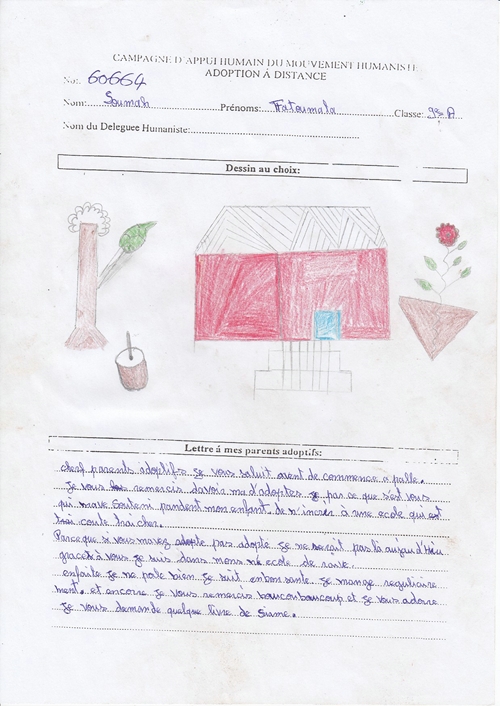 CAMPAGNE D'APPUI HUMAIN DU MOUVEMENT HUMANISTE
ADOPTION Á DISTANCE
No: 60664
Nom: Soumah Prénoms: Fatoumata Classe: 9è A
Nom du Deleguee Humaniste:
Dessin au choix:
Lettre á mes parents adoptifs:
cherf parents adoptifs je vous saluit avent de commence a palle.
Je vous remercis davoir ma d'adoptes je par ce que s'est vous
qui mave Souteni pandent mon enfant de n'increr à une ecole qui est
coute trai cher.
Parce que si vous mavez adopte pas adopté je ne serait pas là aujourd'hui
graceà vous je suis dans mons ecole de
enfaite je me pole bien je suit en bon sante. je mange regulicaire
ment. et encore je vous remercis baucoubaucoup et je vous adorre
Je vous demande quelque livre de siume.